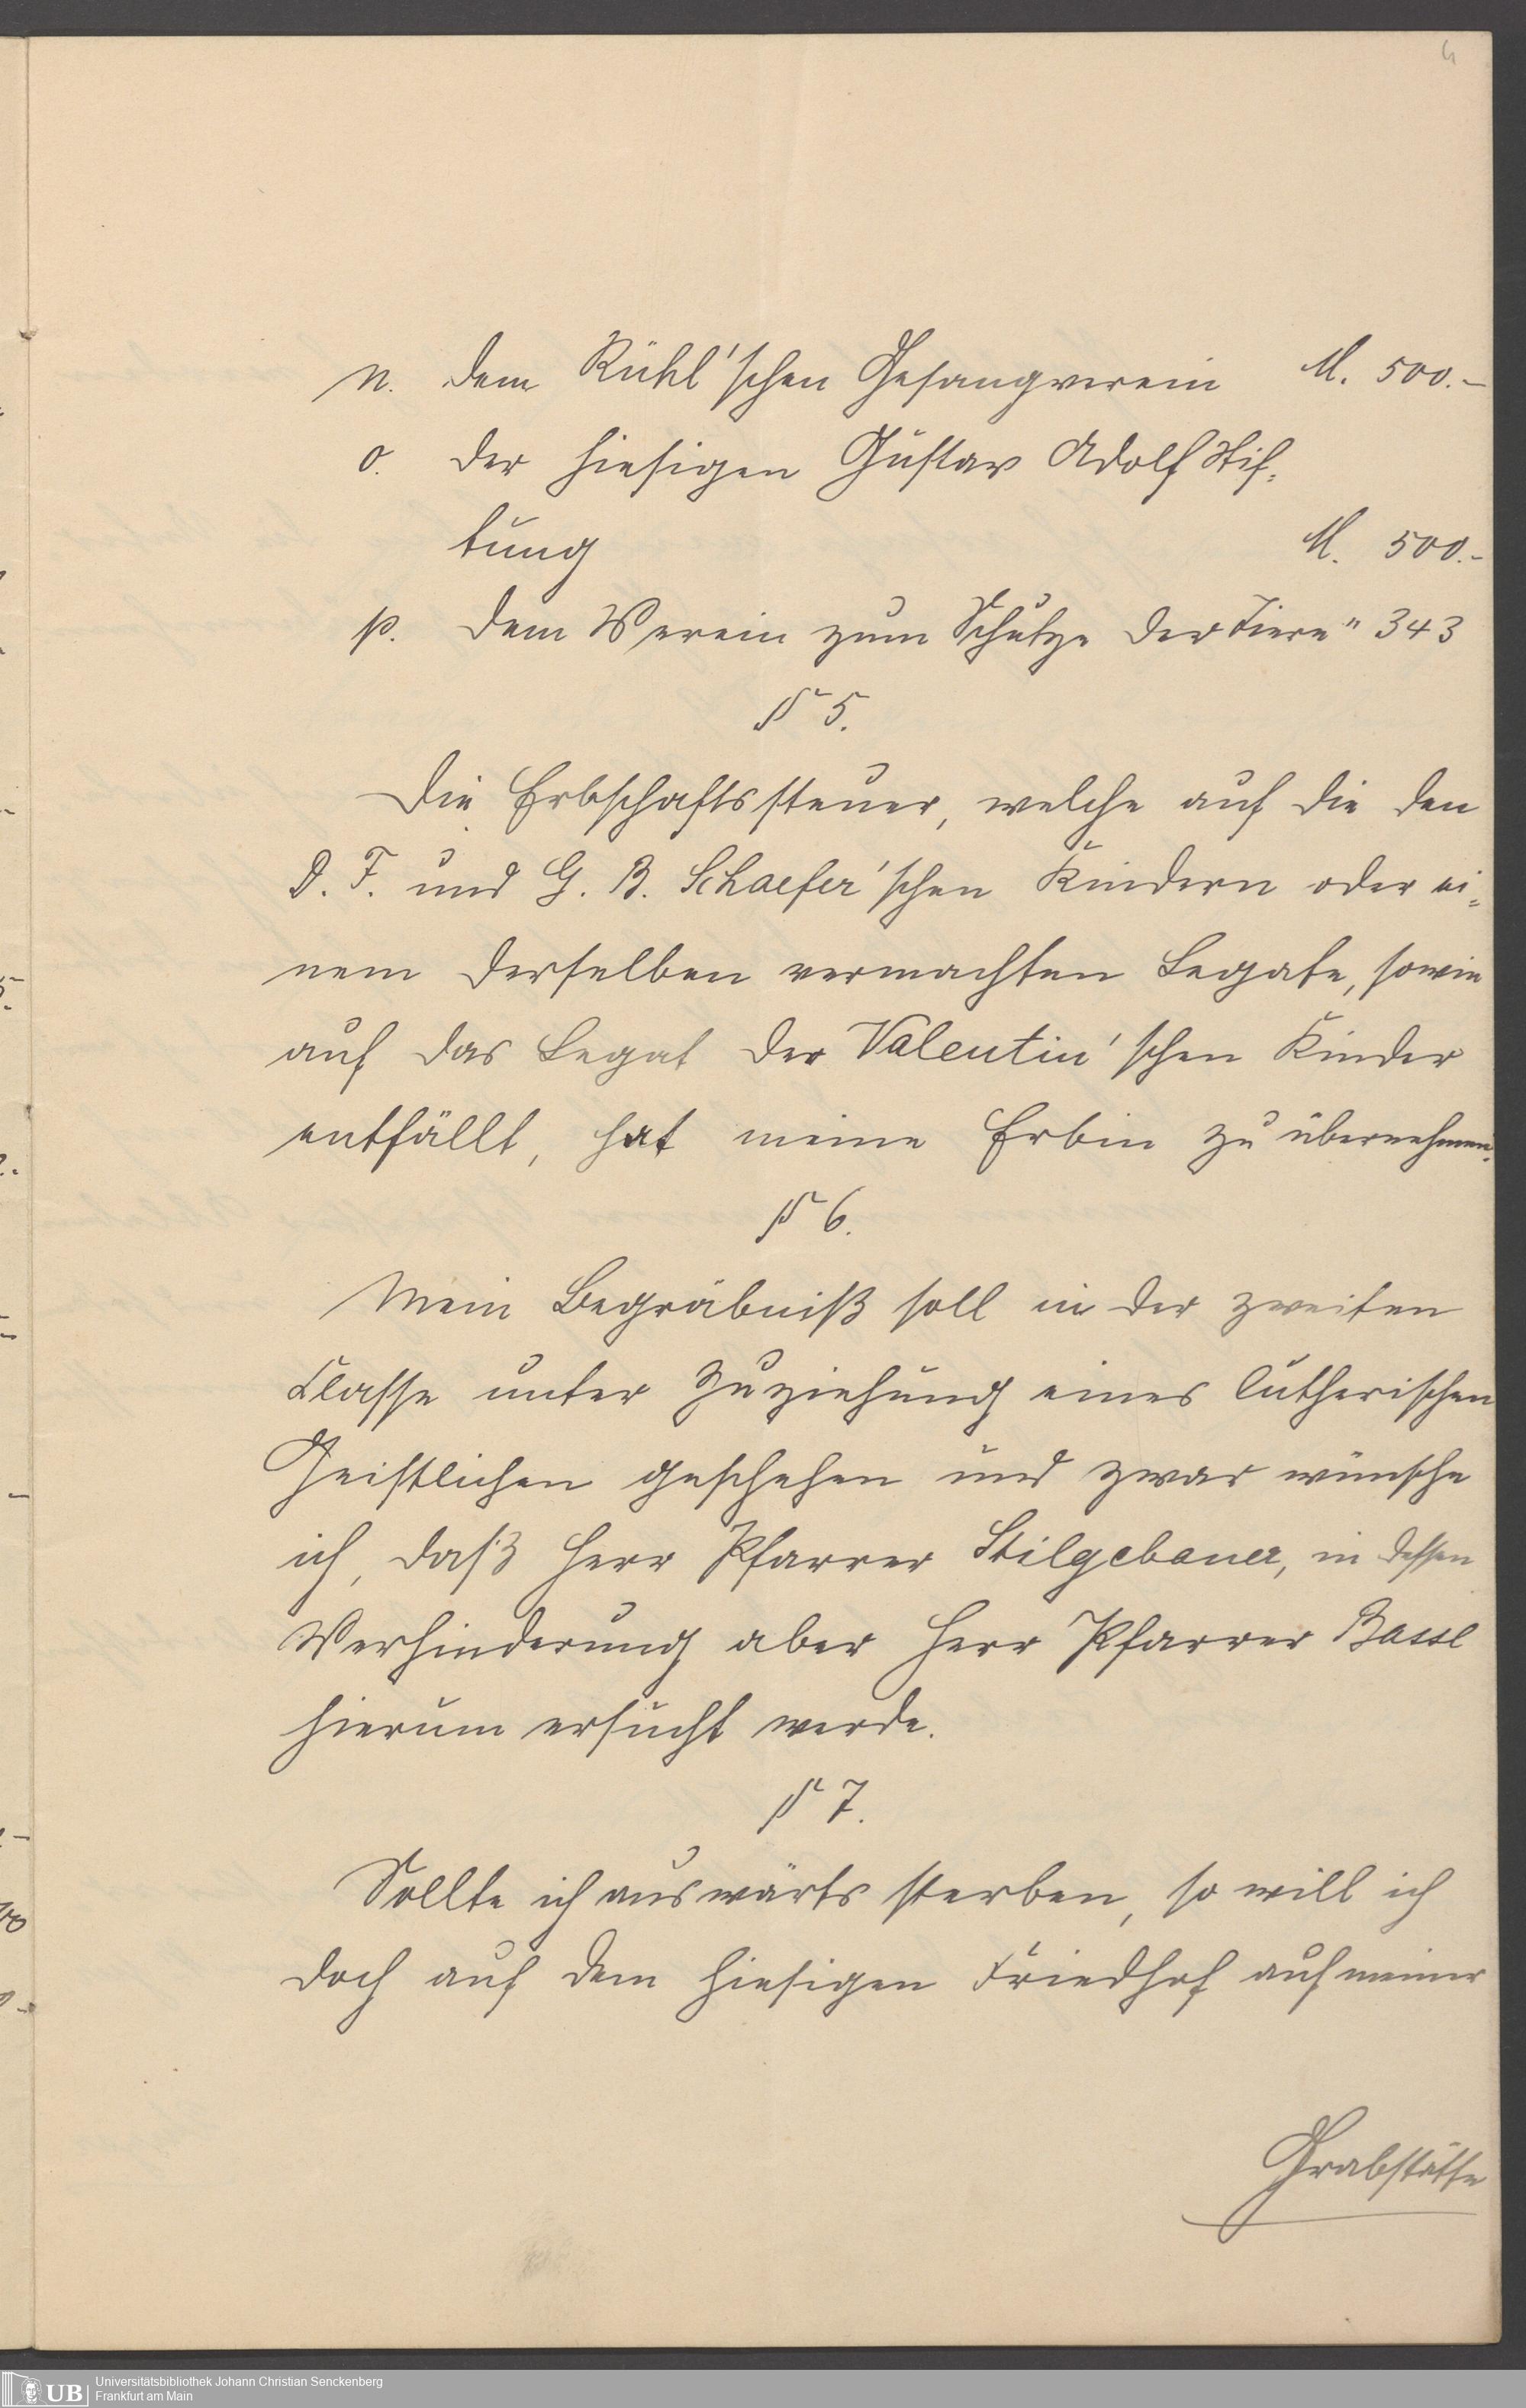 4
n. dem Rühl'schen Gesangverein M. 500.-
o. der hiesigen Gustav Adolf Stif-
tung M. 500.-
p. dem Verein zum Schutze der Tiere " 343
§ 5.
Die Erbschaftssteuer, welche auf die den
D. F. und G. B. Schaefer'schen Kindern oder ei-
nem derselben vermachten Legate, sowie
auf das Legat der Valentin'schen Kinder
entfällt, hat meine Erbin zu übernehmen.
§ 6.
Mein Begräbniß soll in der zweiten
Classe unter Zuziehung eines lutherischen
Geistlichen geschehen und zwar wünsche
ich, daß Herr Pfarrer Stilgebauer, in dessen
Verhinderung aber Herr Pfarrer Basse
hierum ersucht werde.
§ 7.
Sollte ich auswärts sterben, so will ich
doch auf dem hiesigen Friedhof auf meiner
Grabstätte
UB Universitätsbibliothek Johann Christian Senckenberg
Frankfurt am Main